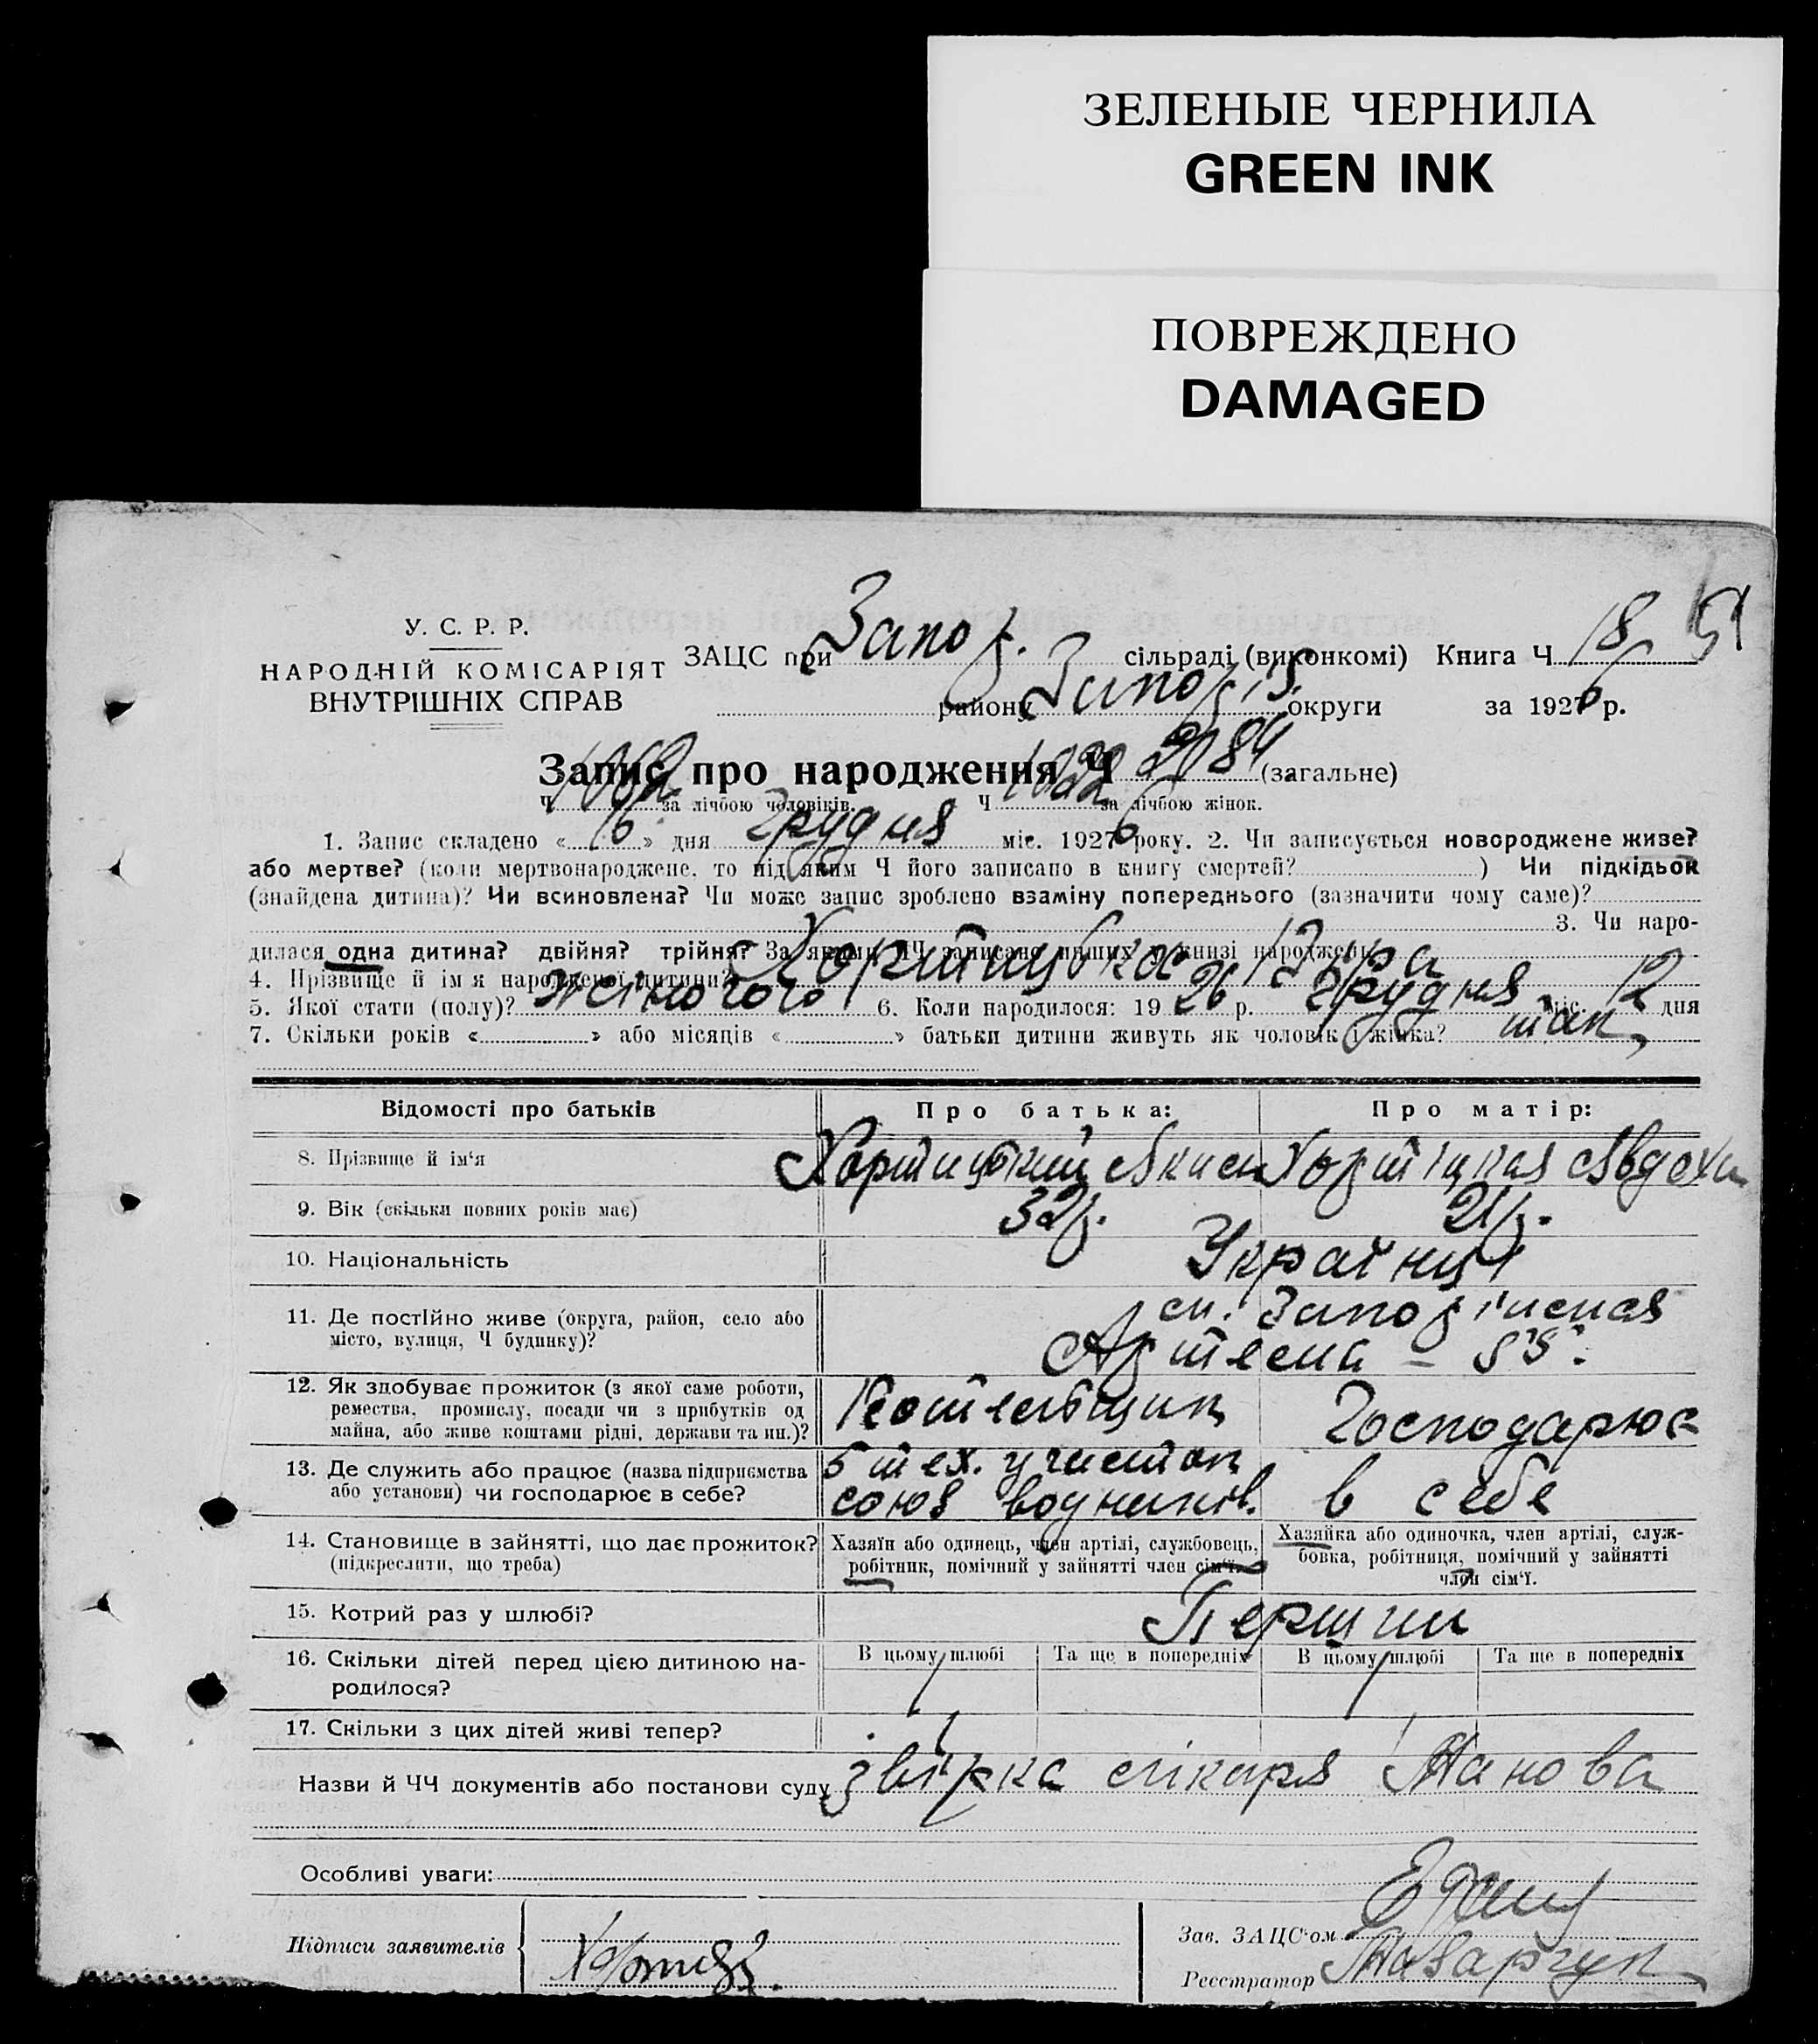 ЗЕЛЕНЫЕ ЧЕРНИЛА
GREEN INK
ПОВРЕЖДЕНО
DAMAGED
У. С. Р. Р.
НАРОДНІЙ КОМІСАРІЯТ
ВНУТРІШНІХ СПРАВ
ЗАЦС при Запоз. сільраді (виконкомі) Книга Ч 18 51
району Запоріз. округи за 1926 р.
Запис про народження Ч 2084 (загальне)
Ч 1062 за лічбою чоловіків. Ч 1022 за лічбою жінок.
1. Запис складено « 16 » дня Грудня міс. 1926 року. 2. Чи записується новороджене живе?
або мертве? (коли мертвонароджене, то під яким Ч його записано в книгу смертей? ) Чи підкідьок
(знайдена дитина)? Чи всиновлена? Чи може запис зроблено взаміну попереднього (зазначити чому саме)?
3. Чи наро-
дилася одна дитина? двійня? трійня? За якими ЧЧ записано инших у книзі народжень
4. Прізвище й ім'я народженої дитини?
5. Якої стати (полу)? жіночого 6. Коли народилося: 1926 р. Грудня міс. 12 дня
7. Скільки років « » або місяців « » батьки дитини живуть як чоловік і жінка? так
Відомості про батьків Про батька: Про матір:
8. Прізвище й ім'я Хортицький Яким Хортицкая Явдоха
9. Вік (скільки повних років має) 32 р. 21 р.
10. Національність Українці
11. Де постійно живе (округа, район, село або ст. Запорізская
місто, вулиця, Ч будинку)? Артема -
12. Як здобуває прожиток (з якої саме роботи,
ремества, промислу, посади чи з прибутків од Господарює
майна, або живе коштами рідні, держави та ин.)?
13. Де служить або працює (назва підприємства 5 тех. участок
або установи) чи господарює в себе? союз водників. в себе
14. Становище в зайнятті, що дає прожиток? Хазяїн або одинець, член артілі, службовець, Хазяйка або одиночка, член артілі, служ-
(підкреслити, що треба) робітник, помічний у зайнятті член сім'ї. бовка, робітниця, помічний у зайнятті
член сім'ї.
15. Котрий раз у шлюбі? Перший
16. Скільки дітей перед цією дитиною на- В цьому шлюбі Та ще в попередніх В цьому шлюбі Та ще в попередніх
родилося? 1 1
17. Скільки з цих дітей живі тепер?
Назви й ЧЧ документів або постанови суду лікаря
Особливі уваги:
Підписи заявителів
Зав. ЗАЦС'ом
Реєстратор